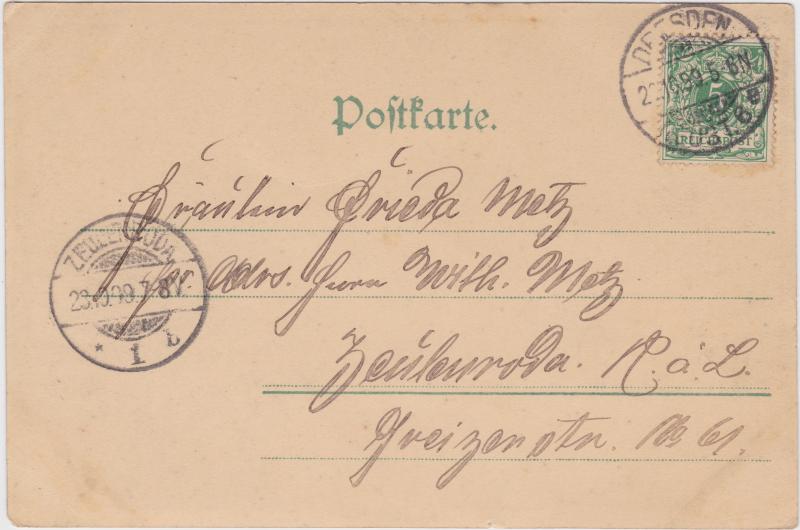 DRESDEN
22.10.99. 5-6N
5
REICHSPOST
Postkarte.
Fräulein Frieda Metz
per Adrs. Herrn Wilh. Metz
Zeulenroda. R. ä. L.
Greizerstr. No 61.
ZEULENRODA
23.10.99. 7-8V.
* 1 b